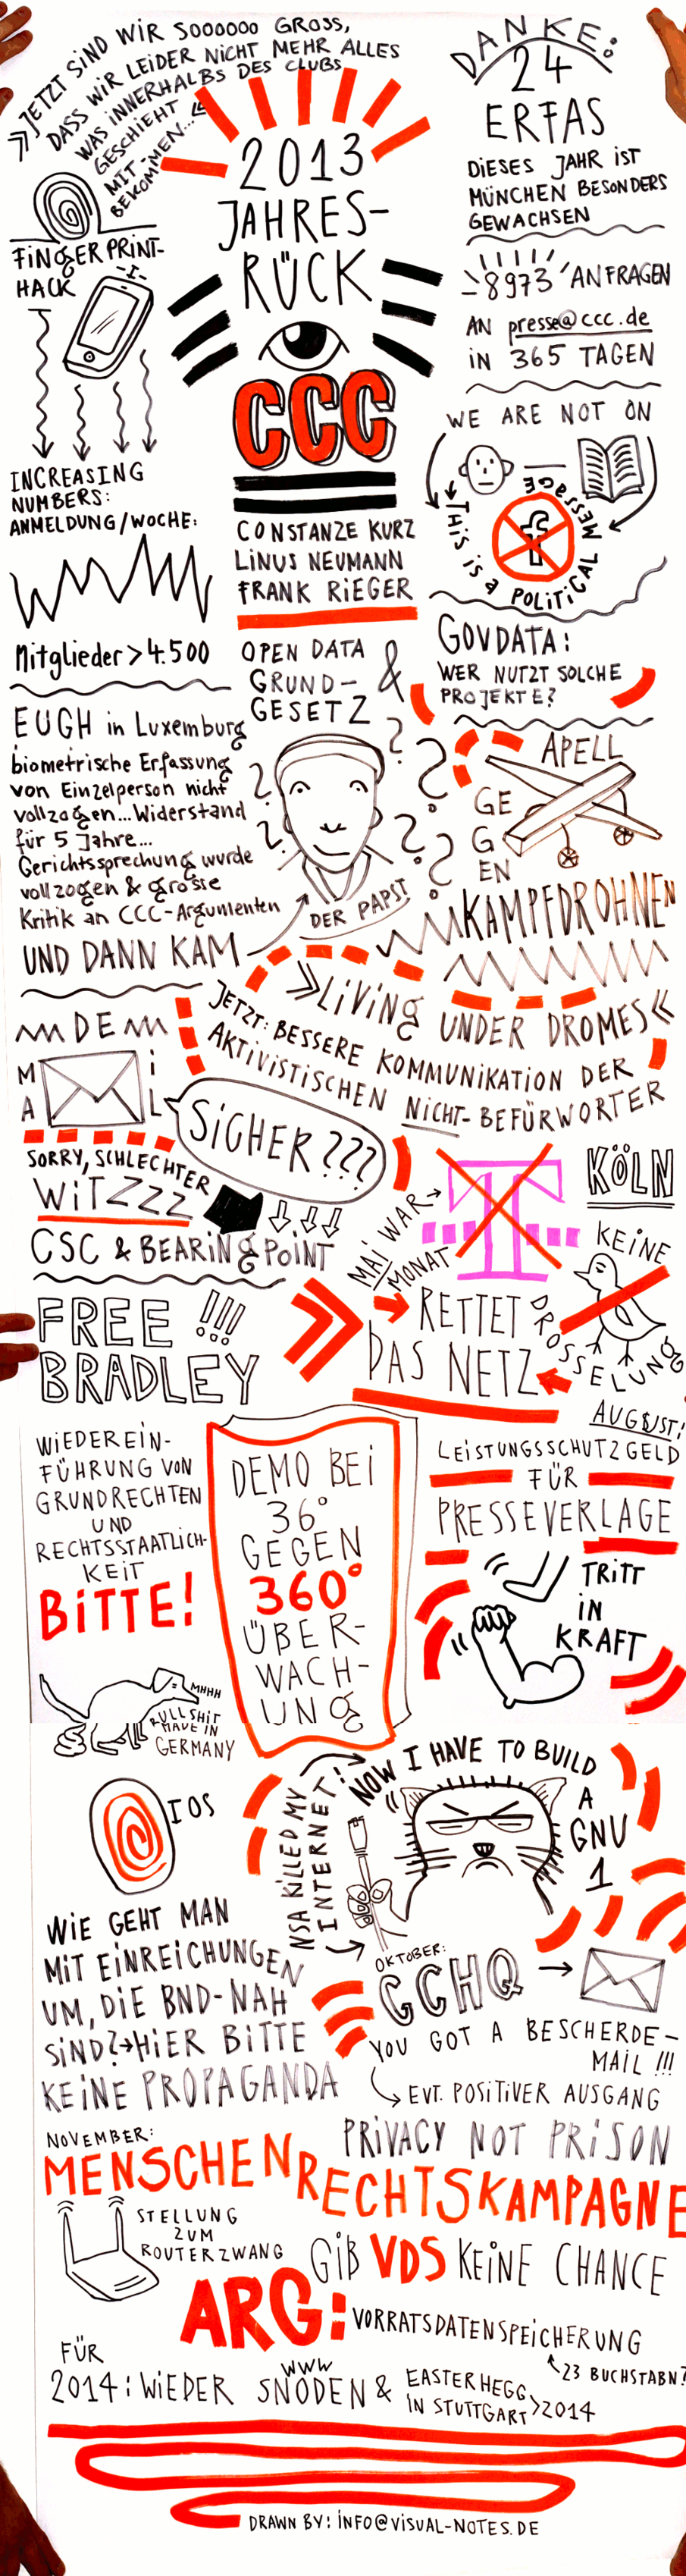 »JETZT SIND WIR SOOOOOO GROSS,
DASS WIR LEIDER NICHT MEHR ALLES
WAS INNERHALBS DES CLUBS
GESCHIEHT
MIT-
BEKOMMEN...«
DANKE:
24
ERFAS
DIESES JAHR IST
MÜNCHEN BESONDERS
GEWACHSEN
2013
JAHRES-
RÜCK
CCC
CONSTANZE KURZ
LINUS NEUMANN
FRANK RIEGER
FINGERPRINT-
HACK
INCREASING
NUMBERS:
ANMELDUNG/WOCHE:
Mitglieder > 4.500
8973 ANFRAGEN
AN presse@ccc.de
IN 365 TAGEN
WE ARE NOT ON
f
THIS IS A POLITICAL MESSAGE
OPEN DATA
&
GRUND-
GESETZ
GOVDATA:
WER NUTZT SOLCHE
PROJEKTE?
EUGH in Luxemburg
biometrische Erfassung
von Einzelperson nicht
vollzogen...Widerstand
für 5 Jahre...
Gerichtssprechung wurde
vollzogen & grosse
Kritik an CCC-Argumenten
UND DANN KAM
? ? ? ? ? ? ?
DER PAPST
APELL
GE
G
EN
KAMPFDROHNEN
»LIVING UNDER DROMES«
JETZT: BESSERE KOMMUNIKATION DER
AKTIVISTISCHEN NICHT-BEFÜRWORTER
DE
MAIL
SICHER???
SORRY, SCHLECHTER
WITZZZ
CSC & BEARINGPOINT
MAI WAR
MONAT
T
KÖLN
KEINE
DROSSELUNG
RETTET
DAS NETZ
FREE !!!
BRADLEY
AUGUST!
WIEDEREIN-
FÜHRUNG VON
GRUNDRECHTEN
UND
RECHTSSTAATLICH-
KEIT
BITTE!
DEMO BEI
36°
GEGEN
360°
ÜBER-
WACH-
UNG
LEISTUNGSSCHUTZGELD
FÜR
PRESSEVERLAGE
TRITT
IN
KRAFT
MHHH
BULLSHIT
MADE IN
GERMANY
IOS
NSA KILLED MY
INTERNET!
NOW I HAVE TO BUILD
A
GNU
1
WIE GEHT MAN
MIT EINREICHUNGEN
UM, DIE BND-NAH
SIND?→HIER BITTE
KEINE PROPAGANDA
OKTOBER:
GCHQ →
YOU GOT A BESCHERDE-
MAIL !!!
EVT. POSITIVER AUSGANG
PRIVACY NOT PRISON
NOVEMBER:
MENSCHENRECHTSKAMPAGNE
STELLUNG
ZUM
ROUTERZWANG
GIB VDS KEINE CHANCE
ARG:
VORRATSDATENSPEICHERUNG
23 BUCHSTABN?
FÜR
2014: WIEDER SNODEN &
WWW
EASTERHEGG
IN STUTTGART >2014
DRAWN BY: INFO@VISUAL-NOTES.DE